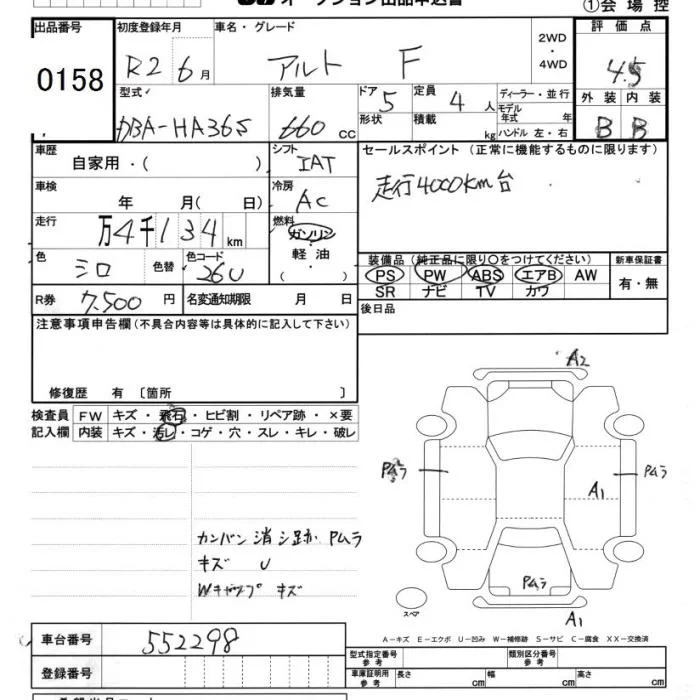 オークション出品申込書
①会場控
出品番号
0158
初度登録年月
R2 6月
車名・グレード
アルト F
2WD
・
4WD
評価点
4.5
型式
DBA-HA36S
排気量
660 cc
ドア
5
定員
4 人
形状
積載
kg
ディーラー・並行
モデル年式
年式
ハンドル 左・右
外装 内装
B B
車歴
自家用・( )
シフト
IAT
セールスポイント (正常に機能するものに限ります)
走行4000Km台
車検
年 月( 日)
冷房
AC
走行
万4千134km
燃料
ガソリン
・
軽油
・
( )
色
シロ
色替
色コード
26U
装備品(純正品に限り○をつけてください)
PS PW ABS エアB AW
SR ナビ TV カワ
新車保証書
有・無
R券
7,500 円
名変通知期限 月 日
後日品
注意事項申告欄(不具合内容等は具体的に記入して下さい)
修復歴 有 〔箇所 〕
検査員
記入欄
FW キズ・飛石・ヒビ割・リペア跡・×要
内装 キズ・汚レ・コゲ・穴・スレ・キレ・破レ
カンバン消シ跡 Pムラ
キズ U
Wキャップ キズ
A2
Pムラ
Pムラ
A1
Pムラ
A1
スペア
A－キズ E－エクボ U－凹み W－補修跡 S－サビ C－腐食 XX－交換済
車台番号
552298
登録番号
型式指定番号
参考
類別区分番号
参考
車庫証明用
参考
長さ cm
幅 cm
高さ cm